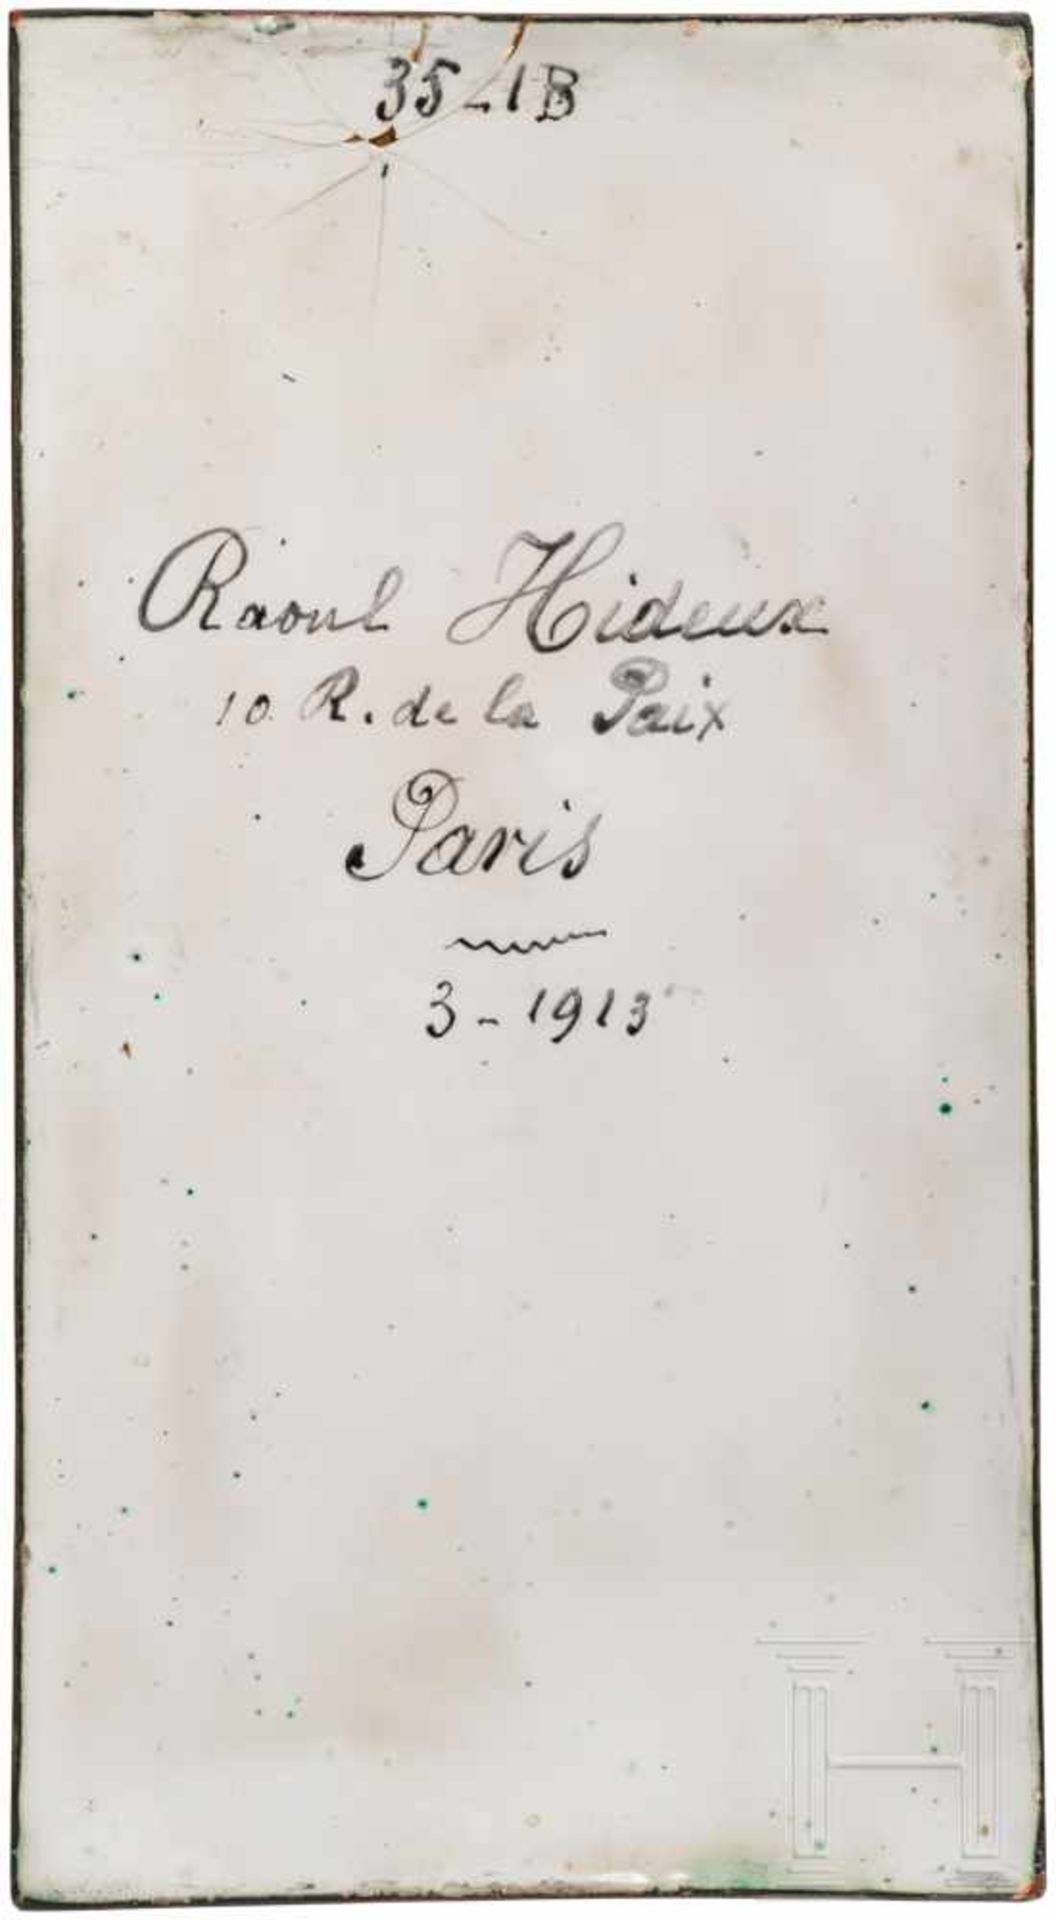 35-1B
Raoul Hideux
10. R. de la Paix
Paris
3-1913
H